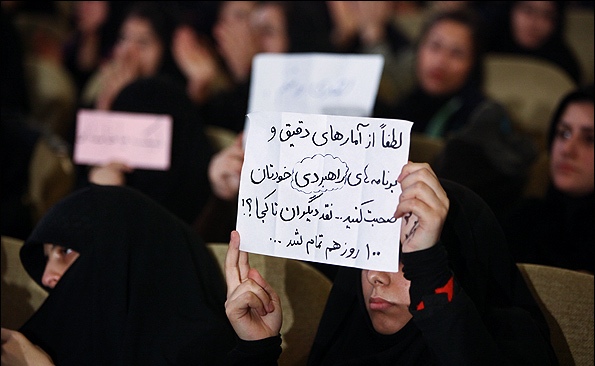 لطفاً از آمارهای دقیق و
برنامه های راهبردی خودتان
صحبت کنید... نقد دیگران تا کجا؟!
۱۰۰ روز هم تمام شد...